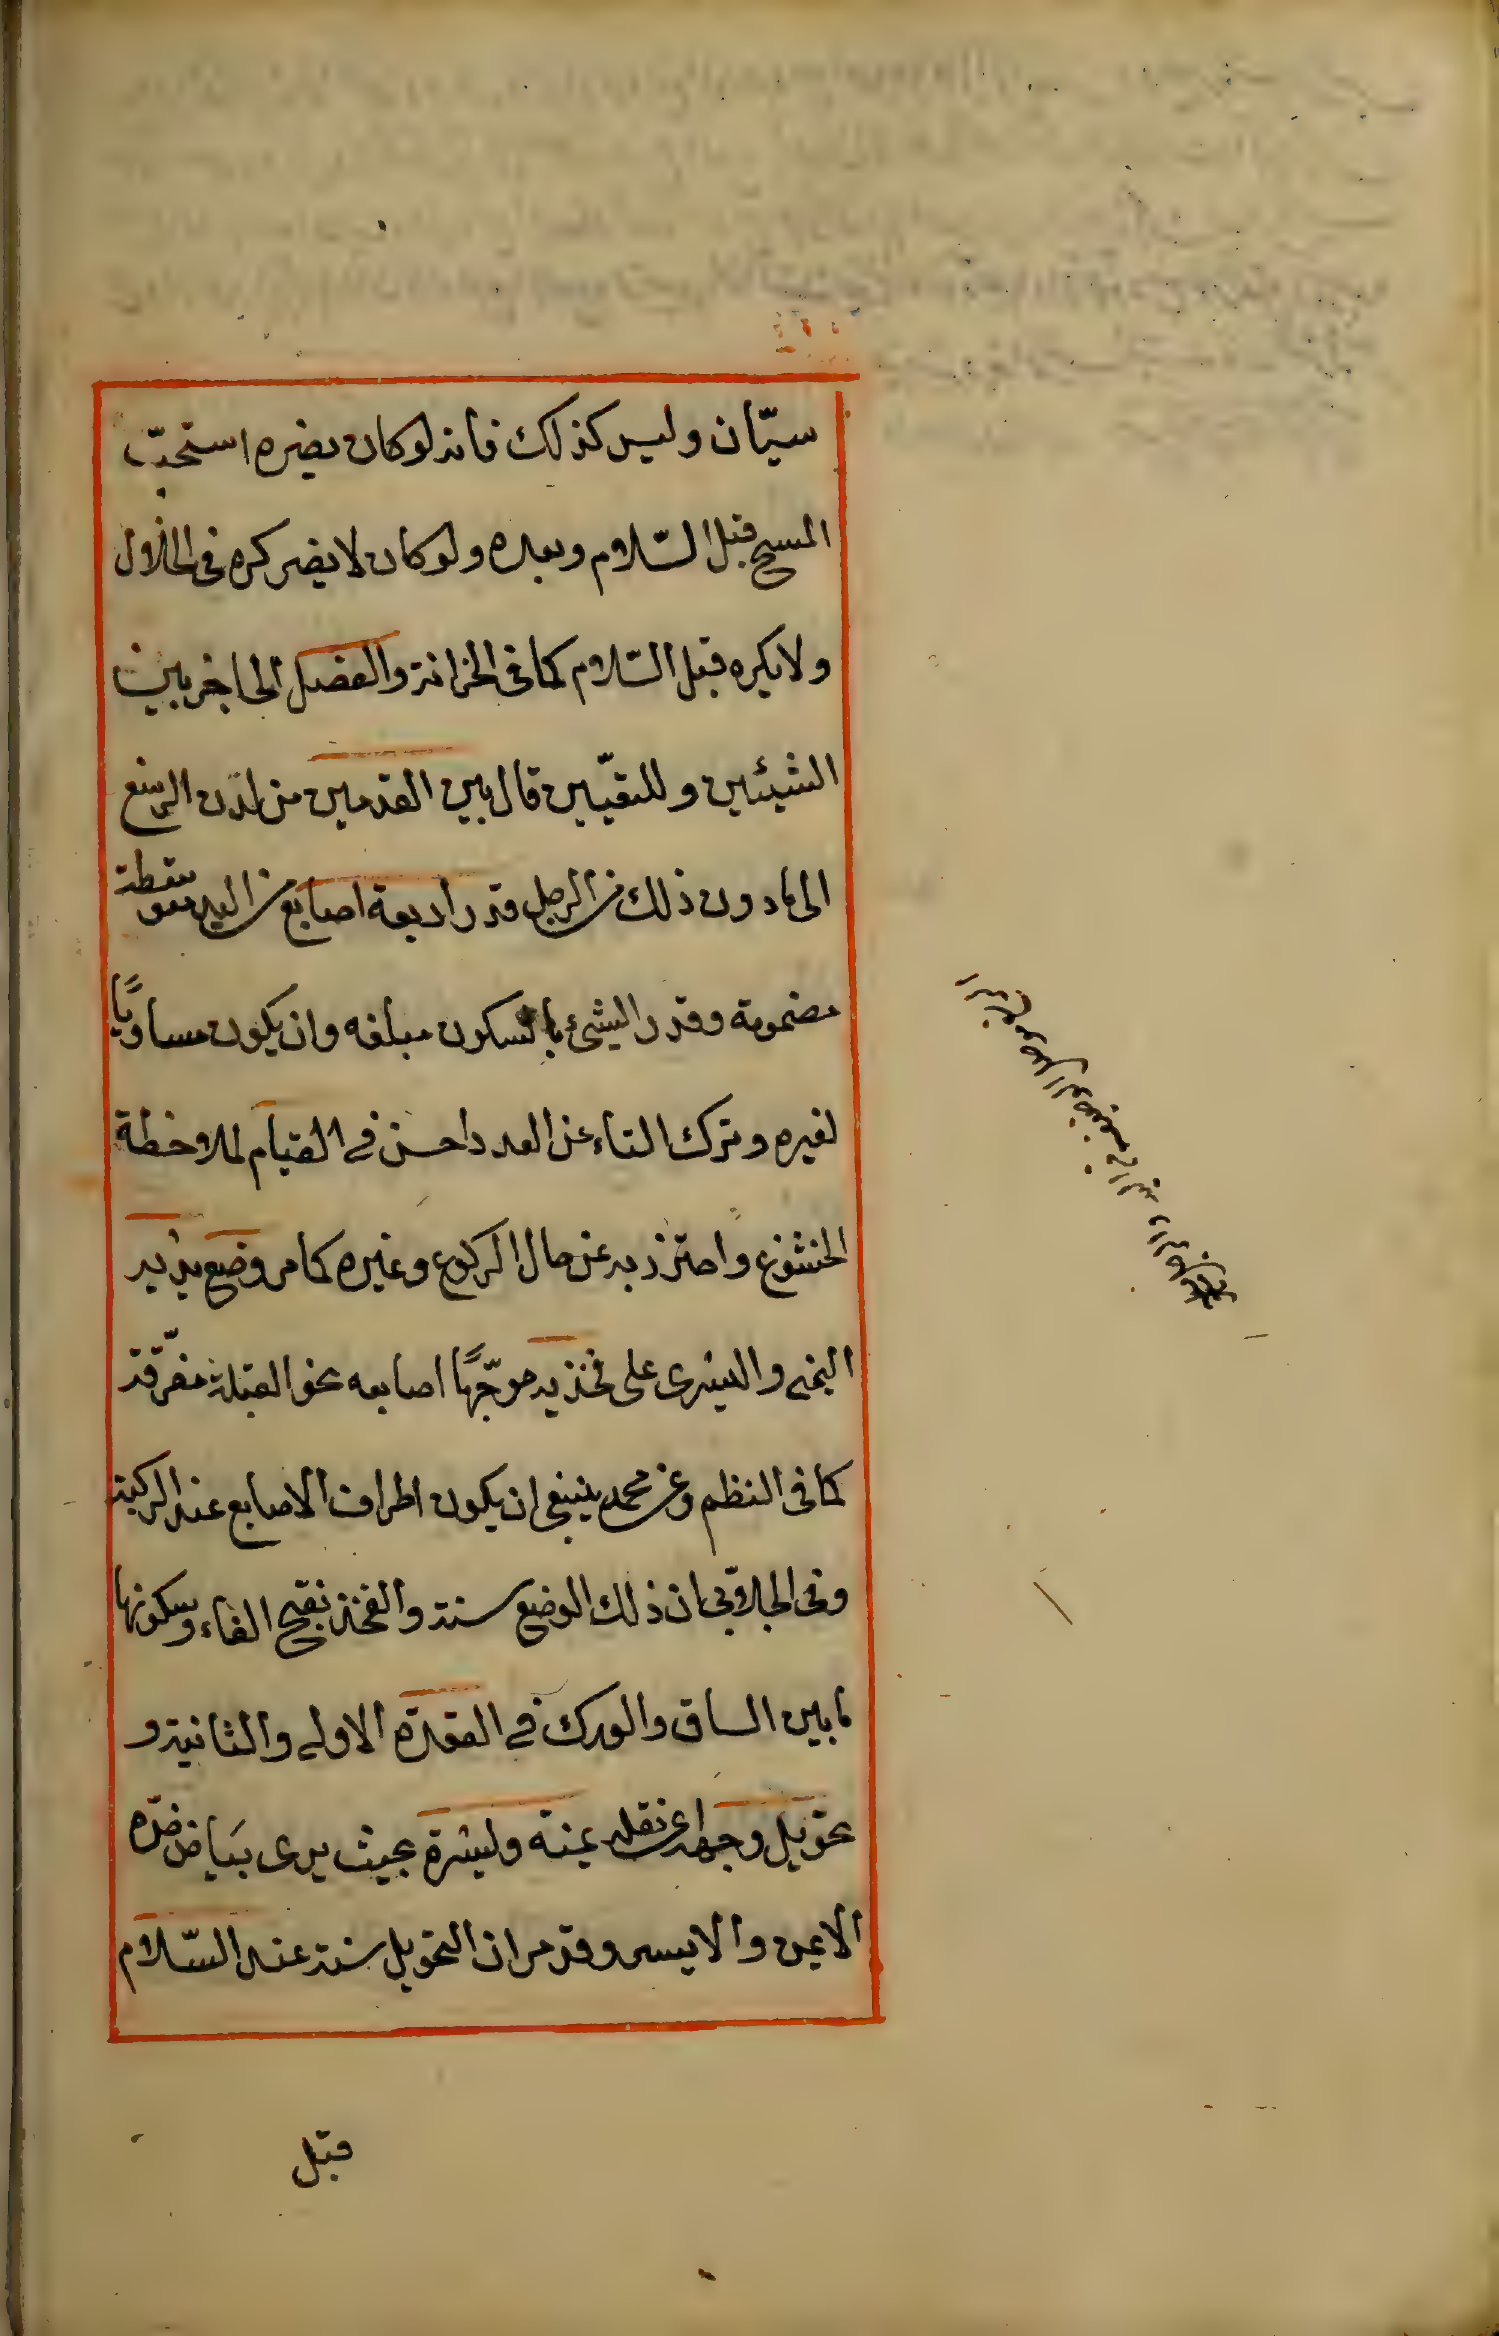 سيّان وليس كذلك فانه لو كان يضره استحبّ
المسح قبل السّلام وبعده ولو كان لا يضر كره فى الخلال
ولا يكره قبل السّلام كما فى الخزانة والفصل الحاجز بين
الشيئين وللتقيين قال بين القدمين من لدن الرسغ
الى ما دون ذلك من الرجل قدر اربعة اصابع من اليد
مضمومة وقدر الشئ بالسكون مبلغه وان يكون مساويًا
لغيره وترك التاء عن العدد احسن فى القيام لملاحظة
الخشوع واحترز به عن حال الركوع وغيره كما مر وضع يديه
اليمنى واليسرى على فخذيه موجّهًا اصابعه نحو القبلة مفرّقة
كما فى النظم وعن محمد ينبغى ان يكون اطراف الاصابع عند الركبة
وفى الجلابى ان ذلك الوضع سنة والفخذ بفتح الفاء وسكونها
ما بين الساق والورك فى القعدة الاولى والثانية و
تحويل وجهه اى نقله يمنة ويسرة بحيث يرى بياض خدّه
الايمن والايسر وقد مر ان التحويل سنة عند السّلام
قبل